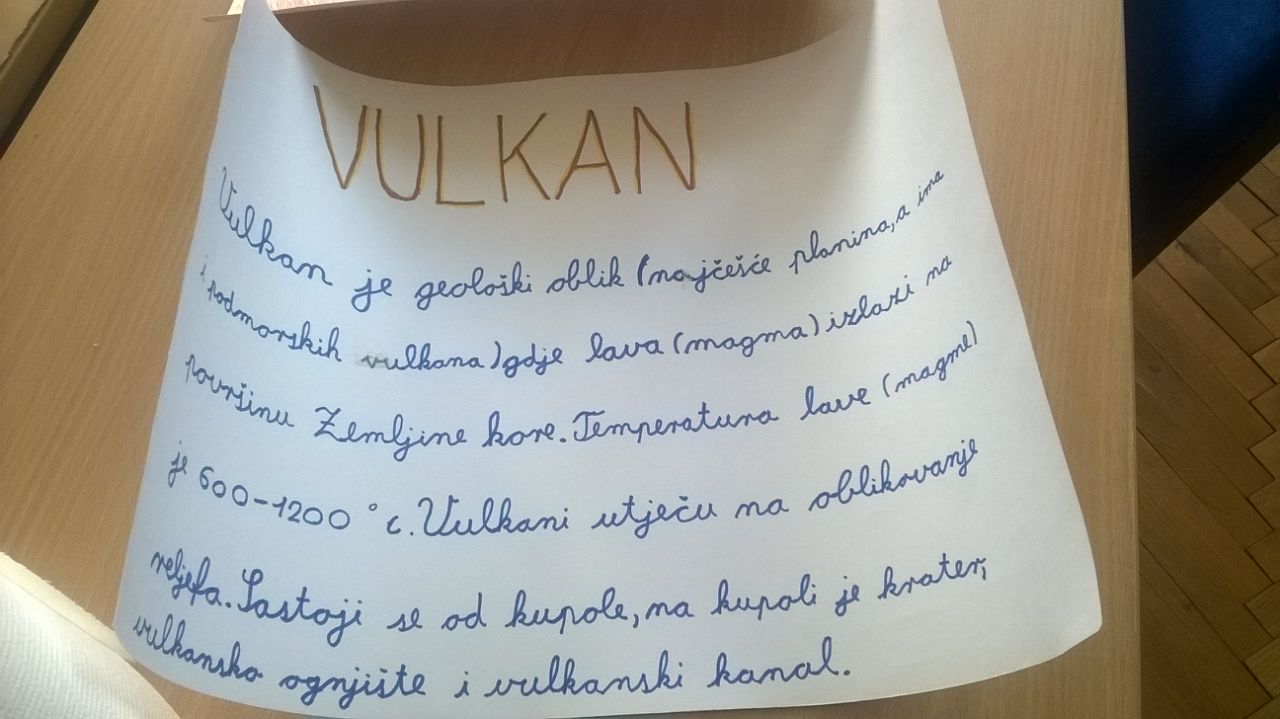 VULKAN
Vulkan je geološki oblik (najčešće planina, a ima
i podmorskih vulkana) gdje lava (magma) izlazi na
površinu Zemljine kore. Temperatura lave (magme)
je 600-1200 °c. Vulkani utječu na oblikovanje
reljefa. Sastoji se od kupole, na kupoli je krater,
vulkansko ognjište i vulkanski kanal.